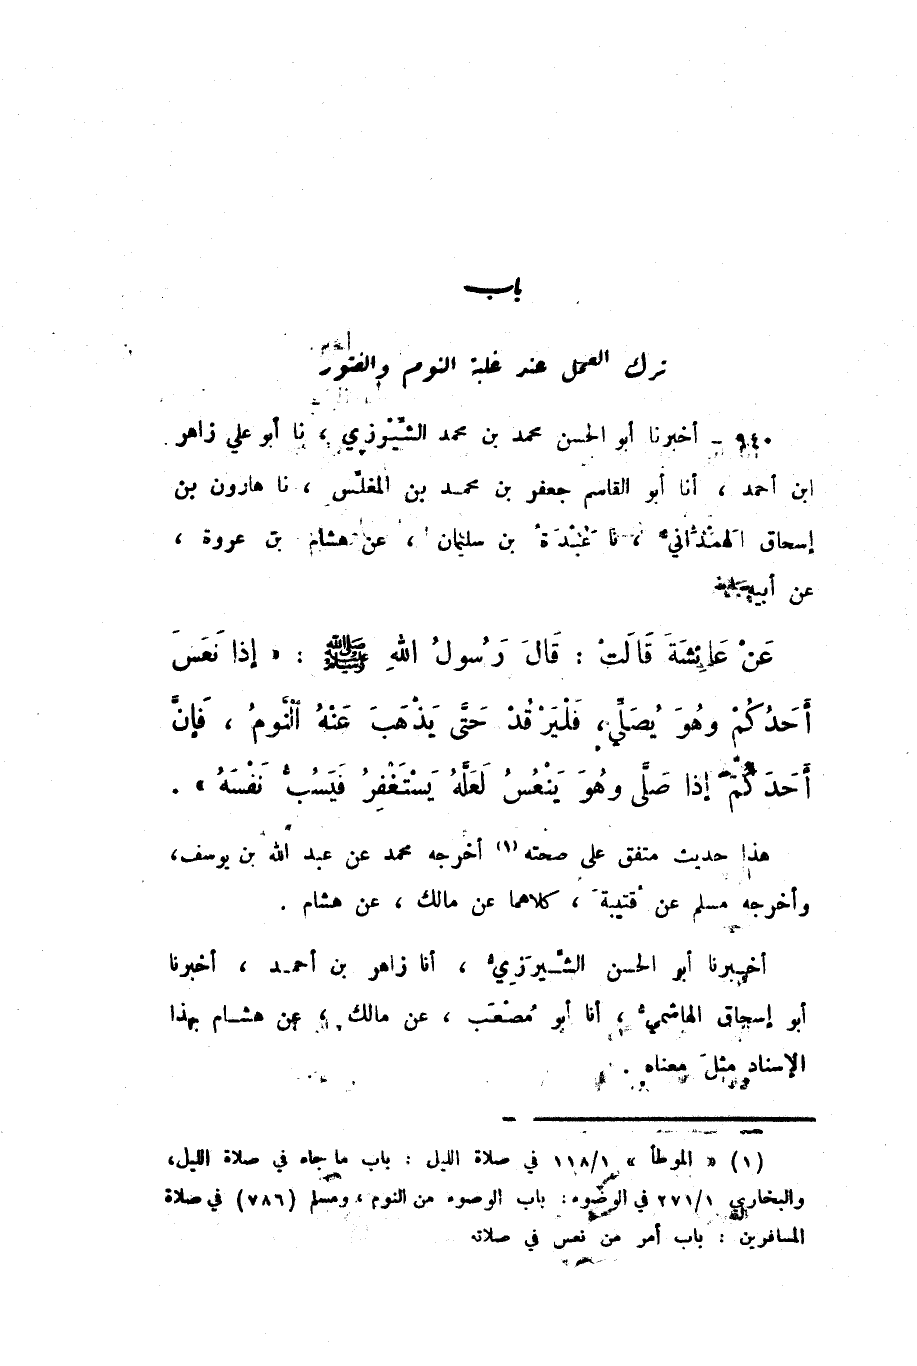 باب
ترك العمل عند غلبة النوم والفتور
٩٤٠ – أخبرنا أبو الحسن محمد بن محمد الشِّيرَزي ، نا أبو علي زاهر
ابن أحمد ، أنا أبو القاسم جعفر بن محمد بن المغلِّس ، نا هارون بن
إسحاق الهمْدَاني ، نا عَبْدَةُ بن سليمان ، عن هشام بن عروة ،
عن أبيه
عَنْ عَائِشَةَ قَالَتْ : قَالَ رَسُولُ اللهِ ﷺ : « إذا نَعَسَ
أَحَدُكُمْ وهُوَ يُصَلِّي ، فَلْيَرْقُدْ حَتَّى يَذْهَبَ عَنْهُ النَّومُ ، فَإنَّ
أَحَدَكُمْ إذا صَلَّى وهُوَ يَنْعُسُ لَعَلَّهُ يَسْتَغْفِرُ فَيَسُبُّ نَفْسَهُ » .
هذا حديث متفق على صحته (١) أخرجه محمد عن عبد الله بن يوسف،
وأخرجه مسلم عن قتيبة ، كلاهما عن مالك ، عن هشام .
أخبرنا أبو الحسن الشِّيرَزيُّ ، أنا زاهر بن أحمد ، أخبرنا
أبو إسحاق الهاشميُّ ، أنا أبو مُصْعَب ، عن مالك ، عن هشام بهذا
الإسناد مثلَ معناه .
(١) « الموطأ » ١١٨/١ في صلاة الليل : باب ما جاء في صلاة الليل،
والبخاري ٢٧١/١ في الوضوء : باب الوضوء من النوم ، ومسلم (٧٨٦) في صلاة
المسافرين : باب أمر من نعس في صلاته